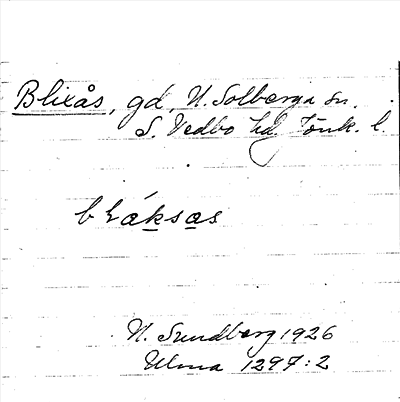 Blixås, gd, N. Solberga sn.
S. Vedbo hd. Jönk. l.
bláksas
N. Sundberg 1926
Ulma 1297:2